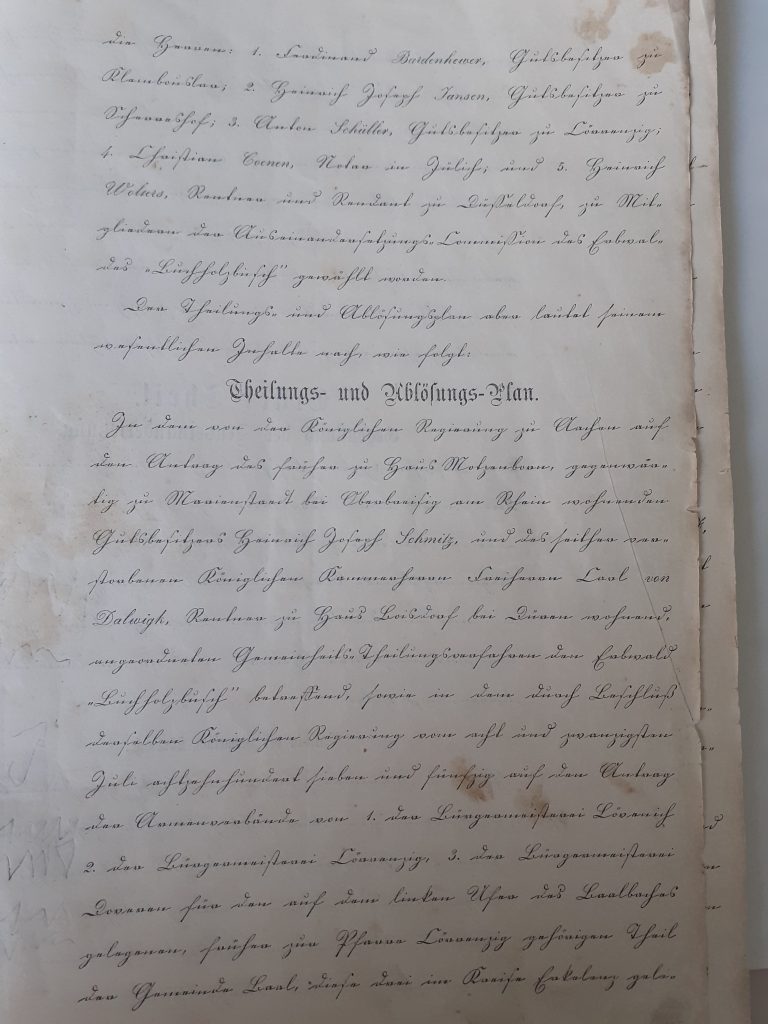 die Herren: 1. Ferdinand Bardenhewer, Gutsbesitzer zu
Kleinbouslar; 2. Heinrich Joseph Jansen, Gutsbesitzer zu
Scherreshof; 3. Anton Schüller, Gutsbesitzer zu Cörrenzig;
4. Christian Coenen, Notar in Jülich; und 5. Heinrich
Wolters, Rentner und Rendant zu Düsseldorf, zu Mit-
gliedern der Auseinandersetzungs-Commission des Erbwal-
des „Buchholzbusch" gewählt worden.
Der Theilungs- und Ablösungsplan aber lautet seinem
wesentlichen Inhalte nach, wie folgt:
Theilungs- und Ablösungs-Plan.
In dem von der Königlichen Regierung zu Aachen auf
den Antrag des früher zu Haus Motzenborn, gegenwär-
tig zu Marienstaedt bei Oberbreisig am Rhein wohnenden
Gutsbesitzers Heinrich Joseph Schmitz, und des seither ver-
storbenen Königlichen Kammerherrn Freiherrn Carl von
Dalwigk, Rentner zu Haus Boisdorf bei Düren wohnend,
angeordneten Gemeinheits-Theilungsverfahren den Erbwald
„Buchholzbusch" betreffend, sowie in dem durch Beschluß
derselben Königlichen Regierung vom acht und zwanzigsten
Juli achtzehnhundert sieben und fünfzig auf den Antrag
der Armenverbände von 1. der Bürgermeisterei Lövenich
2. der Bürgermeisterei Cörrenzig, 3. der Bürgermeisterei
Doveren für den auf dem linken Ufer des Baalbaches
gelegenen, früher zur Pfarre Cörrenzig gehörigen Theil
der Gemeinde Baal, diese drei im Kreise Erkelenz gele-